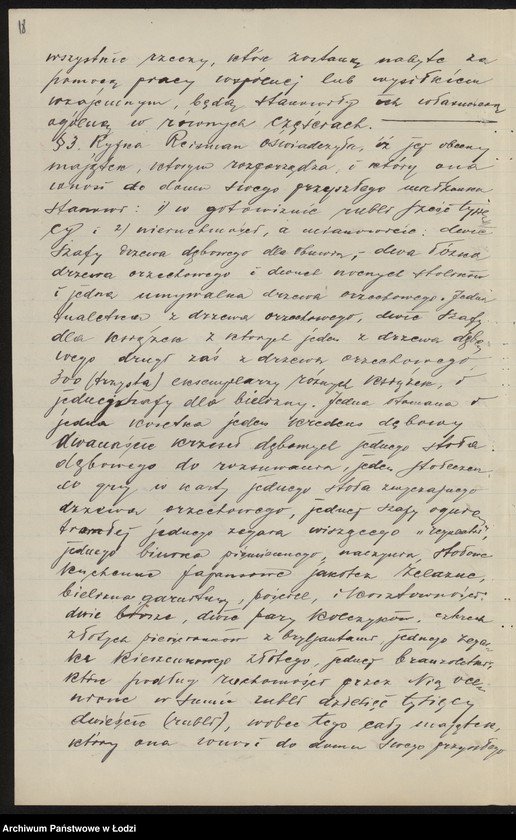 18
wszystkie rzeczy, które zostaną nabyte za
pomocą pracy wspólnej lub wysiłkiem
wzajemnym, będą stanowiły ich własność
ogólną w rownych częściach.
§3. Ryfka Reisman oświadczyła, iż jej obecny
majątek, którym rozporządza, i który ona
wnosi do domu swego przyszłego małżonka
stanowi: 1) w gotowiznie rubli sześć tysię
cy i 2) nieruchomości, a mianowicie: dwie
szafy drzewa dębowego dla ubrania, dwa łóżka
drzewa orzechowego i dwóch nocnych stolików
i jedna umywalna drzewa orzechowego. Jedna
tualetka z drzewa orzechowego, dwie szafy
dla książek z których jedna z drzewa dębo
wego druga zaś z drzewa orzechowego
300 (trzysta) eksemplarzy różnych książek, i
jednej szafy dla bielizny. Jedna otomana i
jedna kozetka jeden kredens dębowy
dwanaście krzeseł dębowych jednego stołu
dębowego do rozsuwania, jeden stoliczek
do gry w karty jednego stołu zwyczajnego
drzewa orzechowego, jednej szafy
jednego zegara wiszącego
jednego biurka piśmiennego, naczynia stołowe
kuchenne fajansowe jakoteż żelazne,
bielizna garnitury, pościel, i kosztowności:
dwie broszе, dwie pary kolczyków, czterech
złotych pierścionków z brylantami, jednego zegar
ka kieszonkowego złotego, jednej branzoletki,
które podług ruchomości przez Nią oce-
nione w sumie rubli dziesięć tysięcy
dwieście (rubli), wobec tego cały majątek,
który ona wnosi do domu swego przyszłego
Archiwum Państwowe w Łodzi